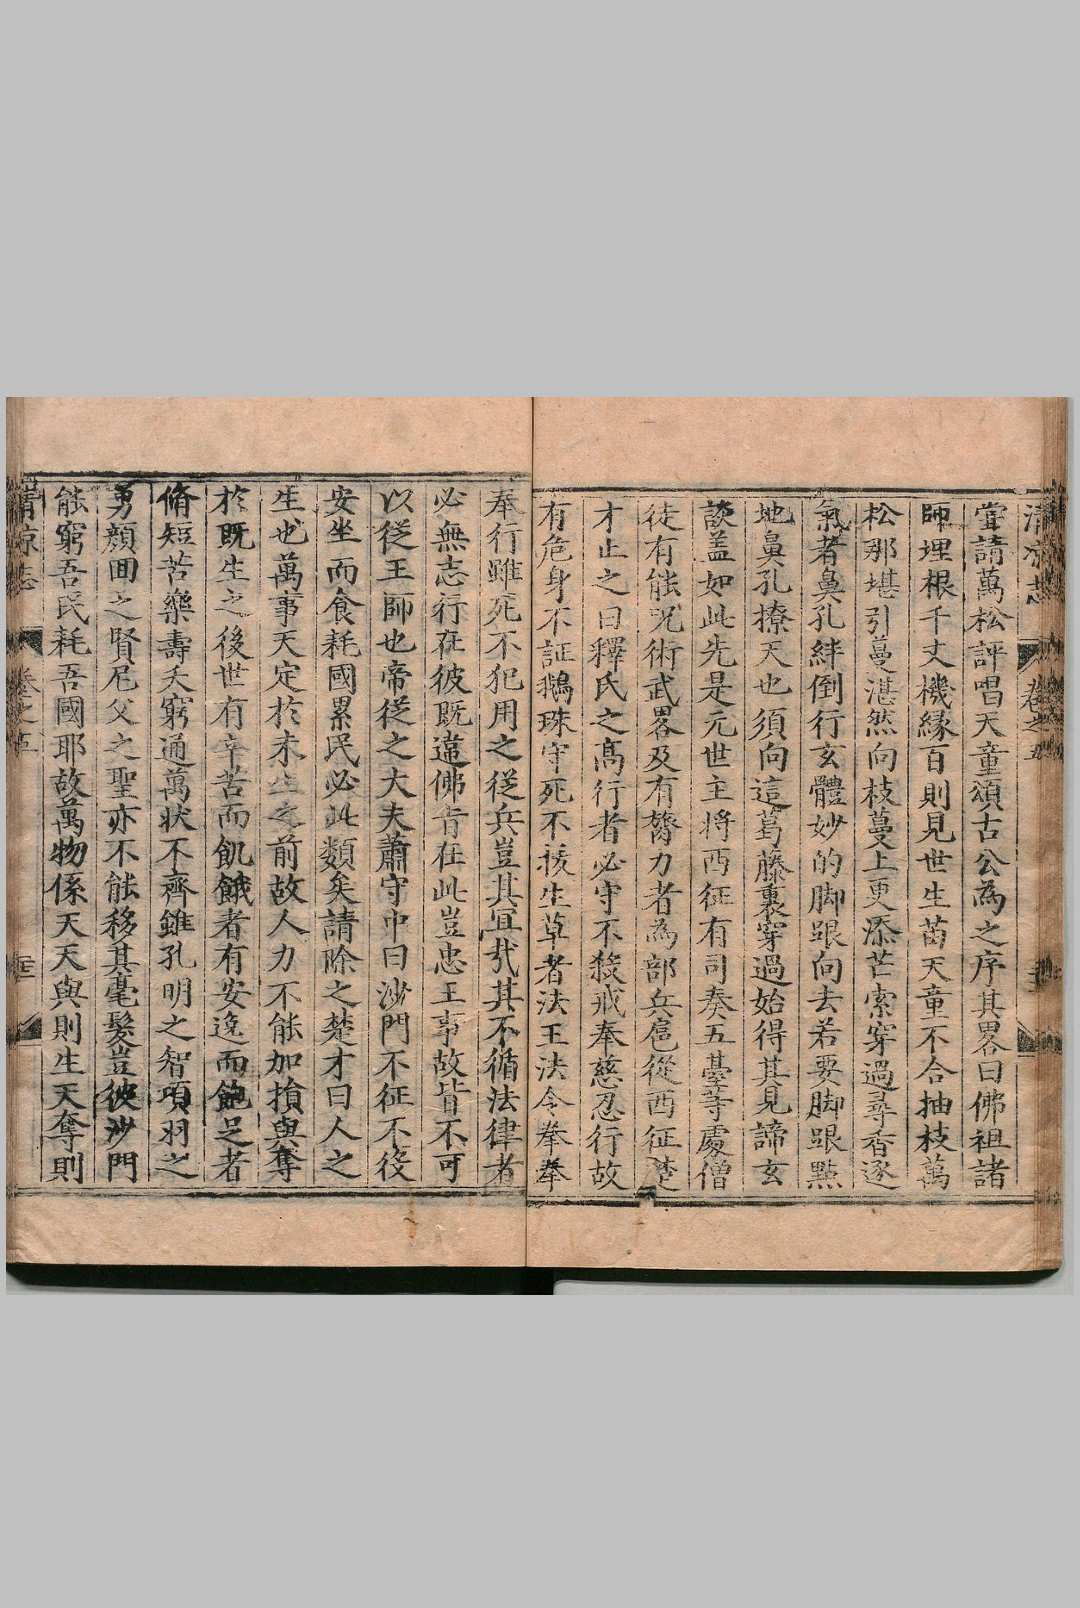 清涼志 卷之五
嘗請萬松評唱天童頌古公為之序其畧曰佛祖諸
師埋根千丈機緣百則見世生苗天童不合抽枝萬
松那堪引蔓湛然向枝蔓上更添芒索穿過尋香逐
氣者鼻孔絆倒行玄體妙的脚跟向去若要脚跟點
地鼻孔撩天也須向這葛藤裏穿過始得其見諦玄
談盖如此先是元世主将西征有司奏五臺等處僧
徒有能咒術武畧及有膂力者為部兵扈從西征楚
才止之曰釋氏之髙行者必守不殺戒奉慈忍行故
有危身不証鵝珠守死不拔生草者法王法令拳拳
奉行雖死不犯用之從兵豈其冝㦲其不循法律者
必無志行在彼既違佛旨在此豈忠王事故皆不可
以從王師也帝從之大夫蕭守中曰沙門不征不役
安坐而食耗國累民必此類矣請除之楚才曰人之
生也萬事天定於未生之前故人力不能加損與奪
於既生之後世有辛苦而飢餓者有安逸而飽足者
脩短苦樂壽夭窮通萬状不齊雖孔明之智項羽之
勇顔囬之賢尼父之聖亦不能移其毫髮豈彼沙門
能窮吾民耗吾國耶故萬物係天天與則生天奪則
清凉志 卷之五